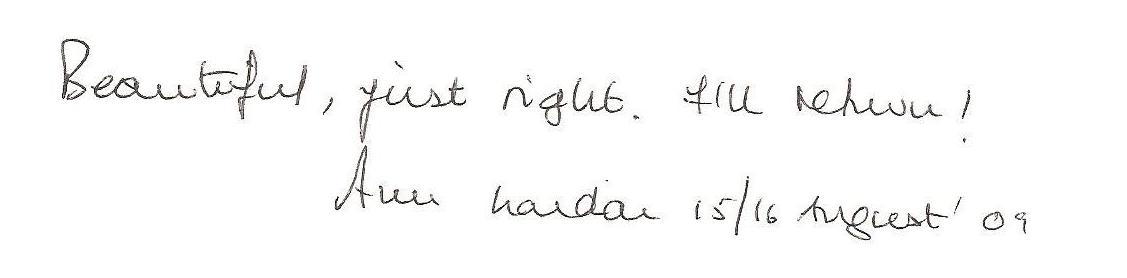 Beautiful, just right. I'll return!
Ann 15/16 August '09